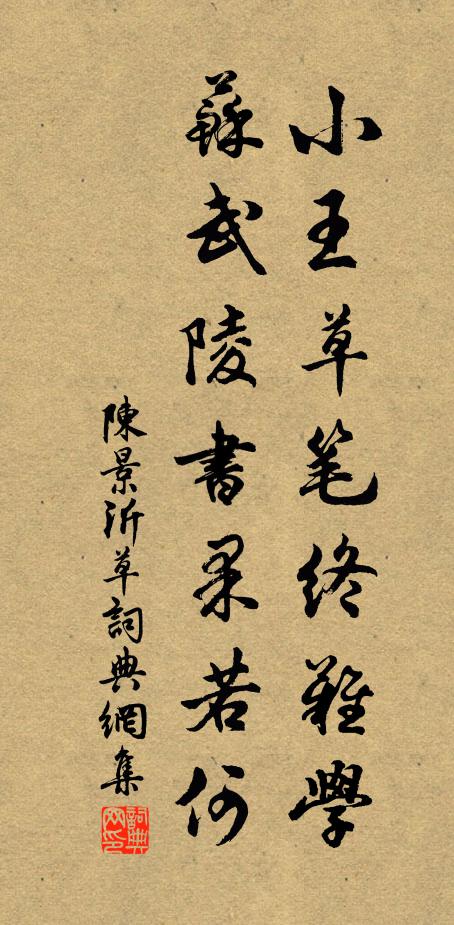 小王草笔终難學
蘇武陵書果若何
陳景沂草詞典網集
詞典网印